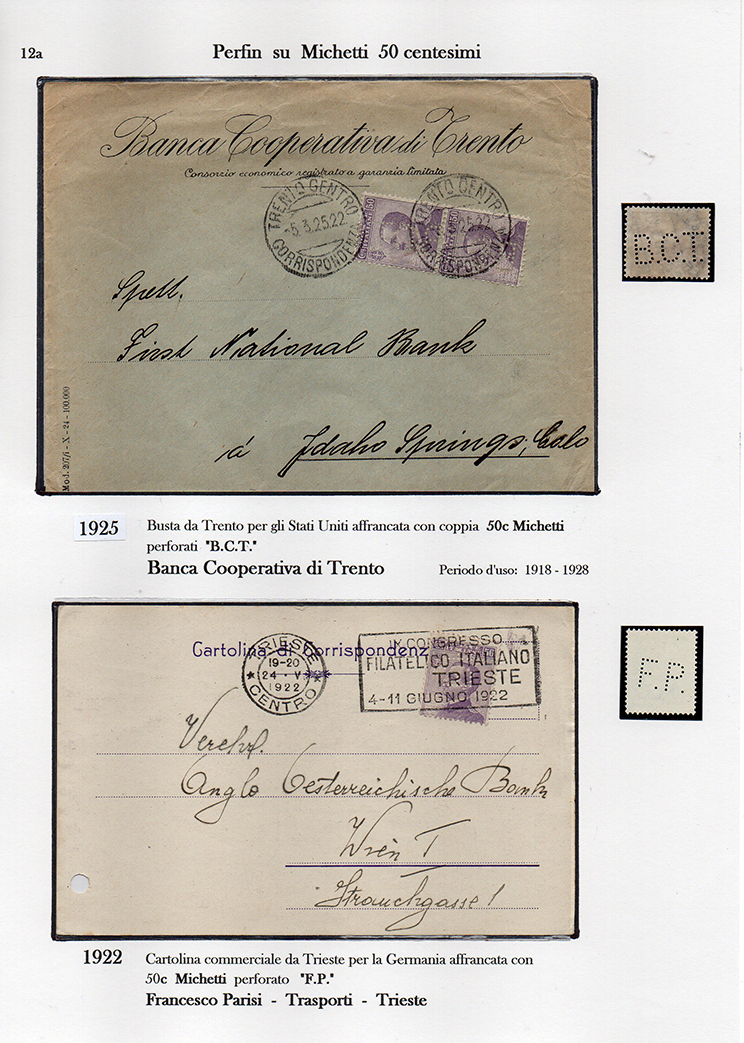 12a
Perfin su Michetti 50 centesimi
Banca Cooperativa di Trento
Consorzio economico registrato a garanzia limitata
TRENTO CENTRO
-5.3.25.22
CORRISPONDENZA
50
TRENTO CENTRO
CORRISPONDENZA
B.C.T.
Spett.
First National Bank
á Idaho Springs, Colo
Mod. 207/i - X - 24 - 100.000
1925 Busta da Trento per gli Stati Uniti affrancata con coppia 50c Michetti
perforati "B.C.T."
Banca Cooperativa di Trento Periodo d'uso: 1918 - 1928
Cartolina di Corrispondenz
TRIESTE
19-20
24 · V
1922
CENTRO
IX CONGRESSO
FILATELICO ITALIANO
TRIESTE
4-11 GIUGNO 1922
F.P.
Verehrl.
Anglo Oesterreichische Bank
Wien I
Strauchgasse 1
1922 Cartolina commerciale da Trieste per la Germania affrancata con
50c Michetti perforato "F.P."
Francesco Parisi - Trasporti - Trieste